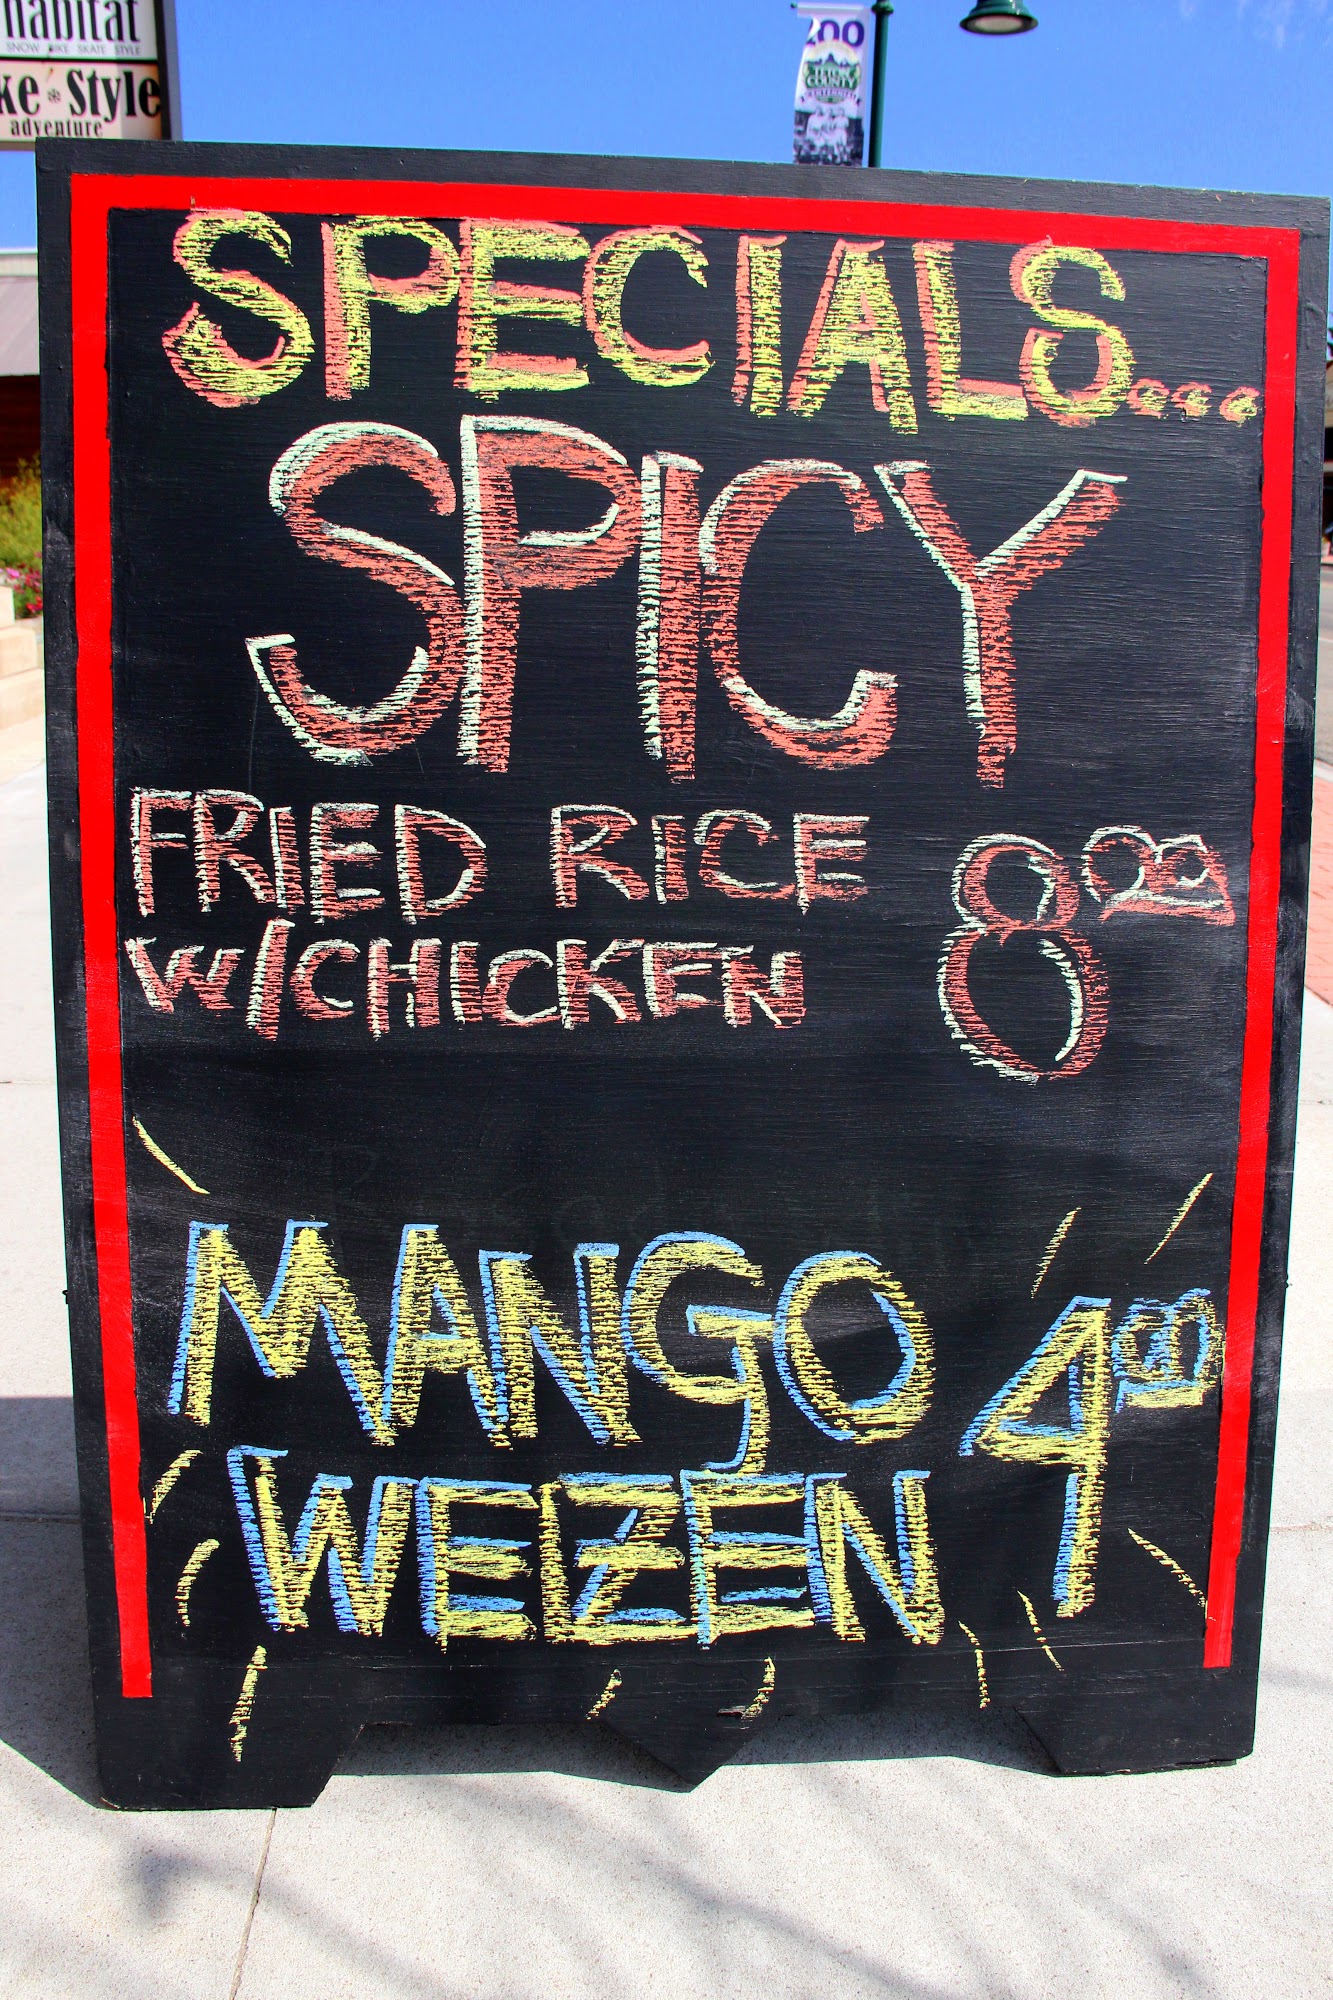 habitat
SNOW BIKE SKATE STYLE
ke Style
adventure
100
TETON
COUNTY
CENTENNIAL
SPECIALS...
SPICY
FRIED RICE
W/CHICKEN
8.00
MANGO
WEIZEN
4.00